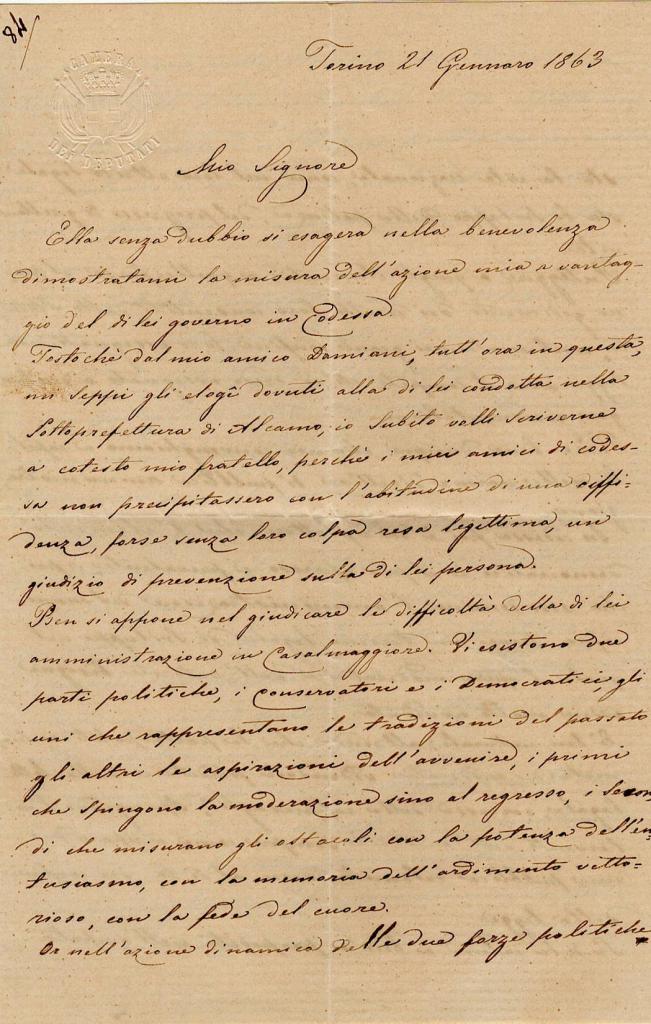 84
CAMERA
DEI DEPUTATI
Torino 21 Gennaro 1863
Mio Signore
Ella senza dubbio si esagera nella benevolenza
dimostratami la misura dell'azione mia a vantag-
gio del di lei governo in Codessa.
Tostochè dal mio amico Damiani, tutt'ora in questa,
mi seppi gli elogî dovuti alla di lei condotta nella
Sottoprefettura di Alcamo, io subito volli scriverne
a cotesto mio fratello, perchè i miei amici di codes-
sa non precipitassero con l'abitudine di una diffi-
denza, forse senza loro colpa resa legittima, un
giudizio di prevenzione sulla di lei persona.
Ben si appone nel giudicare le difficoltà della di lei
amministrazione in Casalmaggiore. Vi esistono due
parti politiche, i Conservatori e i Democratici, gli
uni che rappresentano le tradizioni del passato
gli altri le aspirazioni dell'avvenire, i primi
che spingono la moderazione sino al regresso, i Secon-
di che misurano gli ostacoli con la potenza dell'en-
tusiasmo, con la memoria dell'ardimento vitto-
rioso, con la fede del cuore.
Or nell'azione dinamica delle due forze politiche